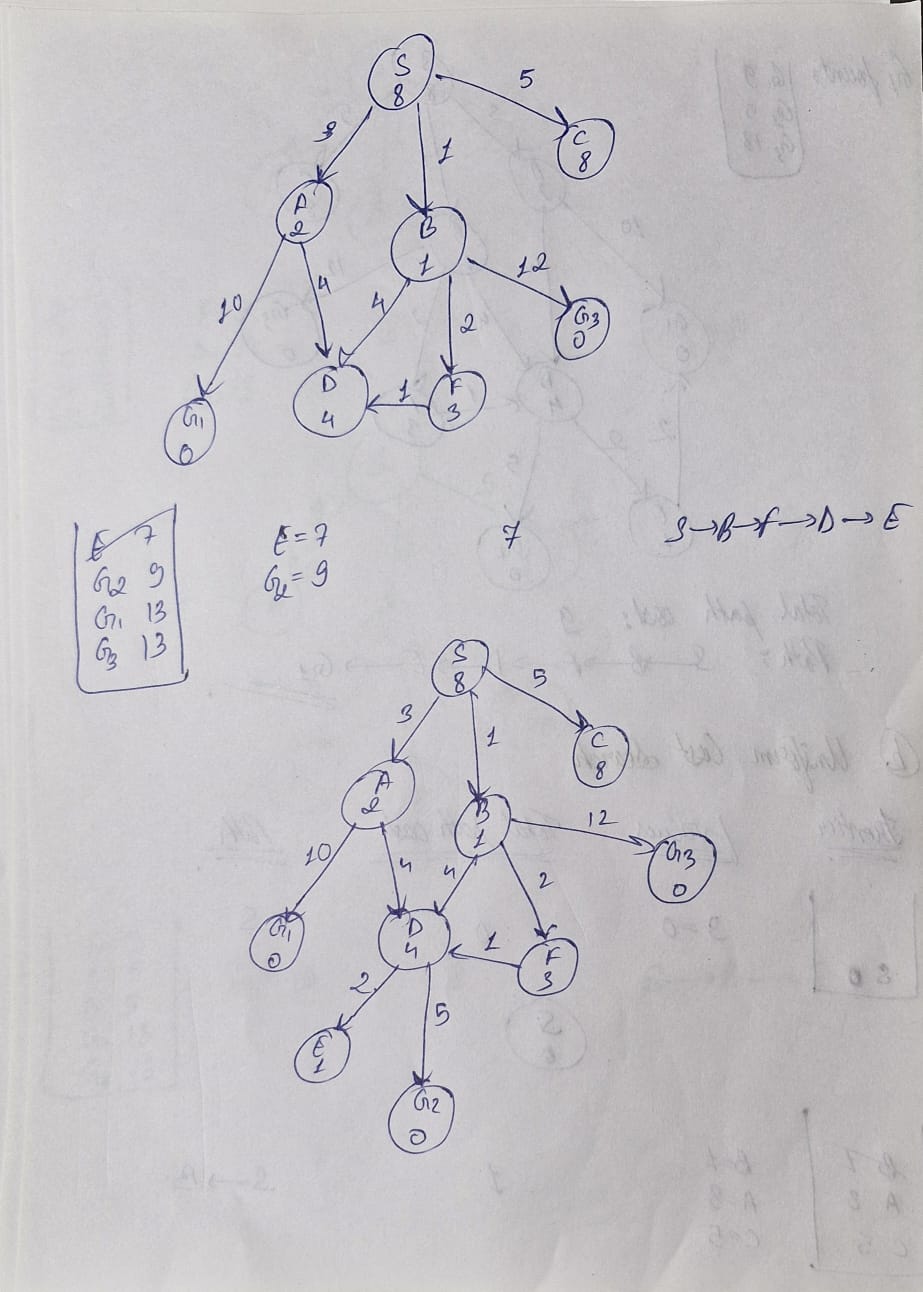 S
8
5
3
1
C
8
A
2
B
1
12
10
4
4
2
G3
0
D
4
1
F
3
G1
0
E 7
G2 9
G1 13
G3 13
E=7
G2=9
7
S→B→F→D→E
S
8
5
3
1
C
8
A
2
B
1
12
10
4
4
2
G3
0
G1
0
D
4
1
F
3
2
5
E
1
G2
0